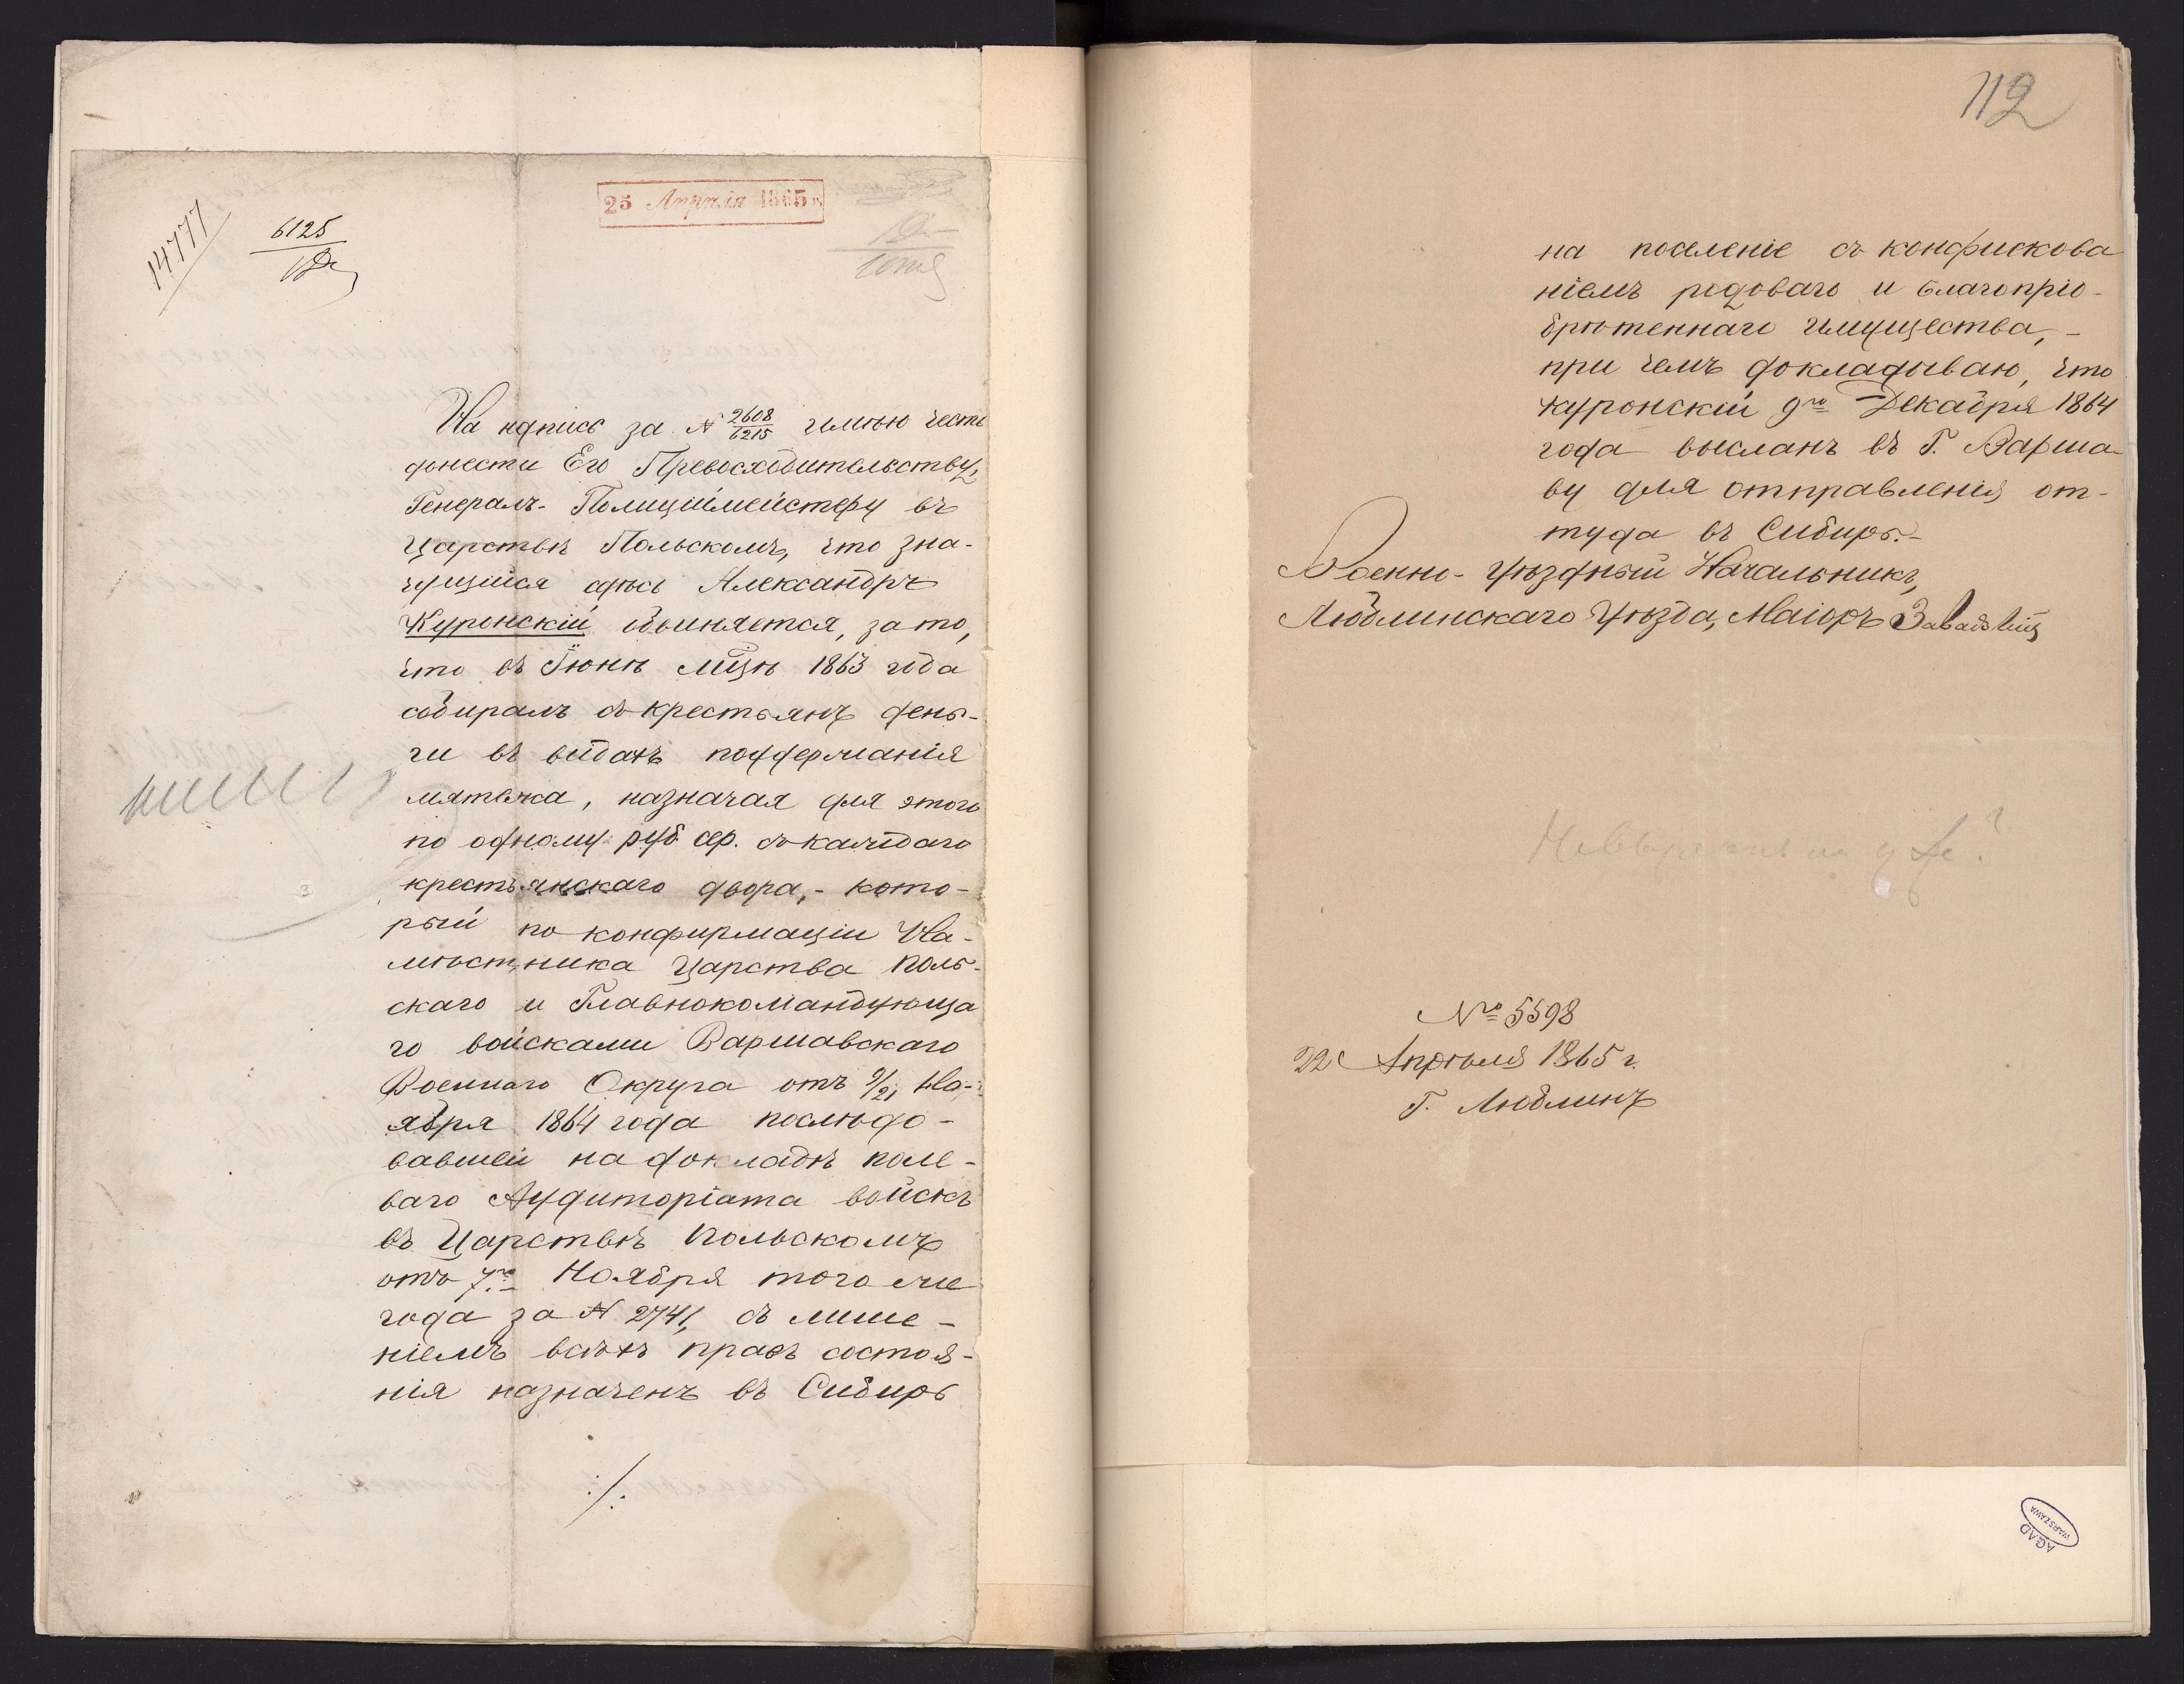 25 Апрѣля 1865 г.
14777
6125
На ндпись за N 2608/6215 имѣю честь
донести Его Превосходительству,
Генералъ-Полиціймейстеру въ
Царствѣ Польскомъ, что зна-
чущійся здѣсь Александръ
Журонскій обвиняется, за то,
что въ Іюнѣ мцѣ 1863 года
собиралъ съ крестьянъ день-
ги въ видахъ поддержанія
мятежа, назначая для этого
по одному руб. сер. съ каждаго
крестьянскаго двора, - кото-
рый по конфирмаціи На-
мѣстника Царства Поль-
скаго и Главнокомандующа
го войсками Варшавскаго
Военнаго Округа отъ 9/21 Но-
ября 1864 года послѣдо-
вавшей на докладѣ поле-
ваго Аудиторіата войскъ
въ Царствѣ Польскомъ
отъ 7го Ноября того же
года за N 2741, съ лише-
ніемъ всѣхъ правъ состоя-
нія назначенъ въ Сибирь
./.
112
на поселеніе съ конфискова
ніемъ родоваго и благопріо-
брѣтеннаго имущества, -
при чемъ докладываю, что
Журонскій 9го Декабря 1864
года высланъ въ Г. Варша-
ву для отправленія от-
туда въ Сибирь. -
Военно-Уѣздный Начальникъ,
Люблинскаго Уѣзда, Маіоръ
№ 5598
22 Апрѣля 1865 г.
Г. Люблинъ
AGAD
WARSZAWA